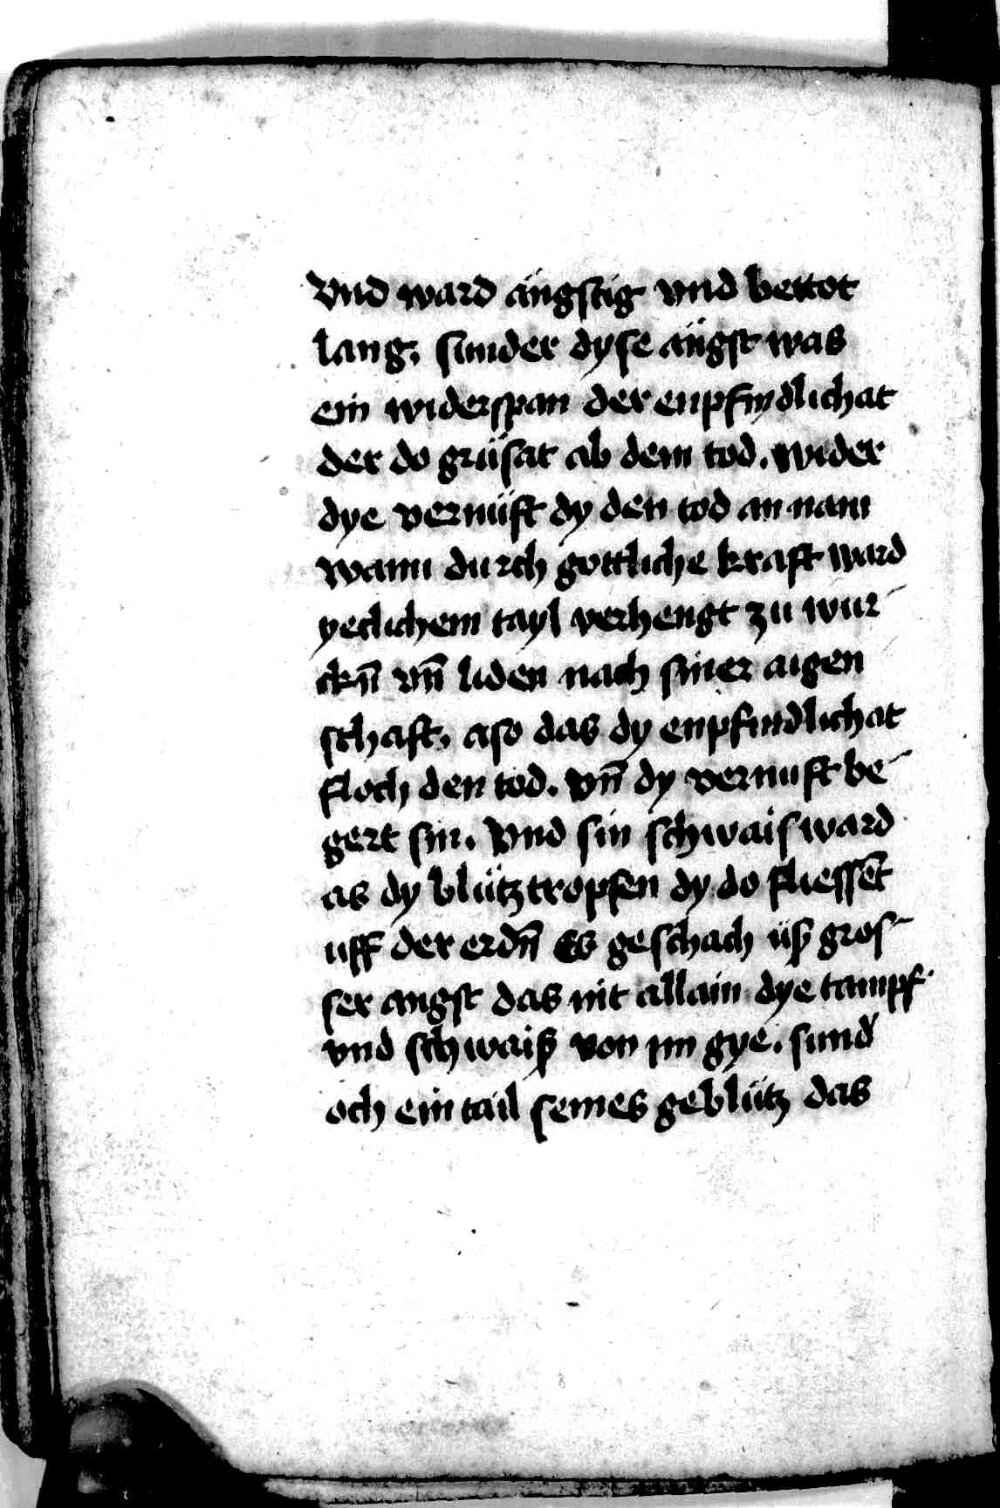 vnd ward ängstig vnd bettot
lang. sunder dyse ängst was
ein widerspan der enpfindlichat
der do grüsat ab dem tod. wider
dye vernüft dy den tod an nam
wann durch gottliche kraft ward
yetlichem tayl verhengt zu wur-
ckn̄ vn̄ liden nach siner aigen
schaft. aso das dy enpfindlichat
floch den tod. vn̄ dy vernuft be-
gert sin. Vnd sin schwais ward
as dy blütztropfen dy do fliessēt
uff der erdn̄ Es geschach üß gros-
ser angst das nit allain dye tampf
vnd schwaiß von im gye. sund'
och ein tail seines geblütz das